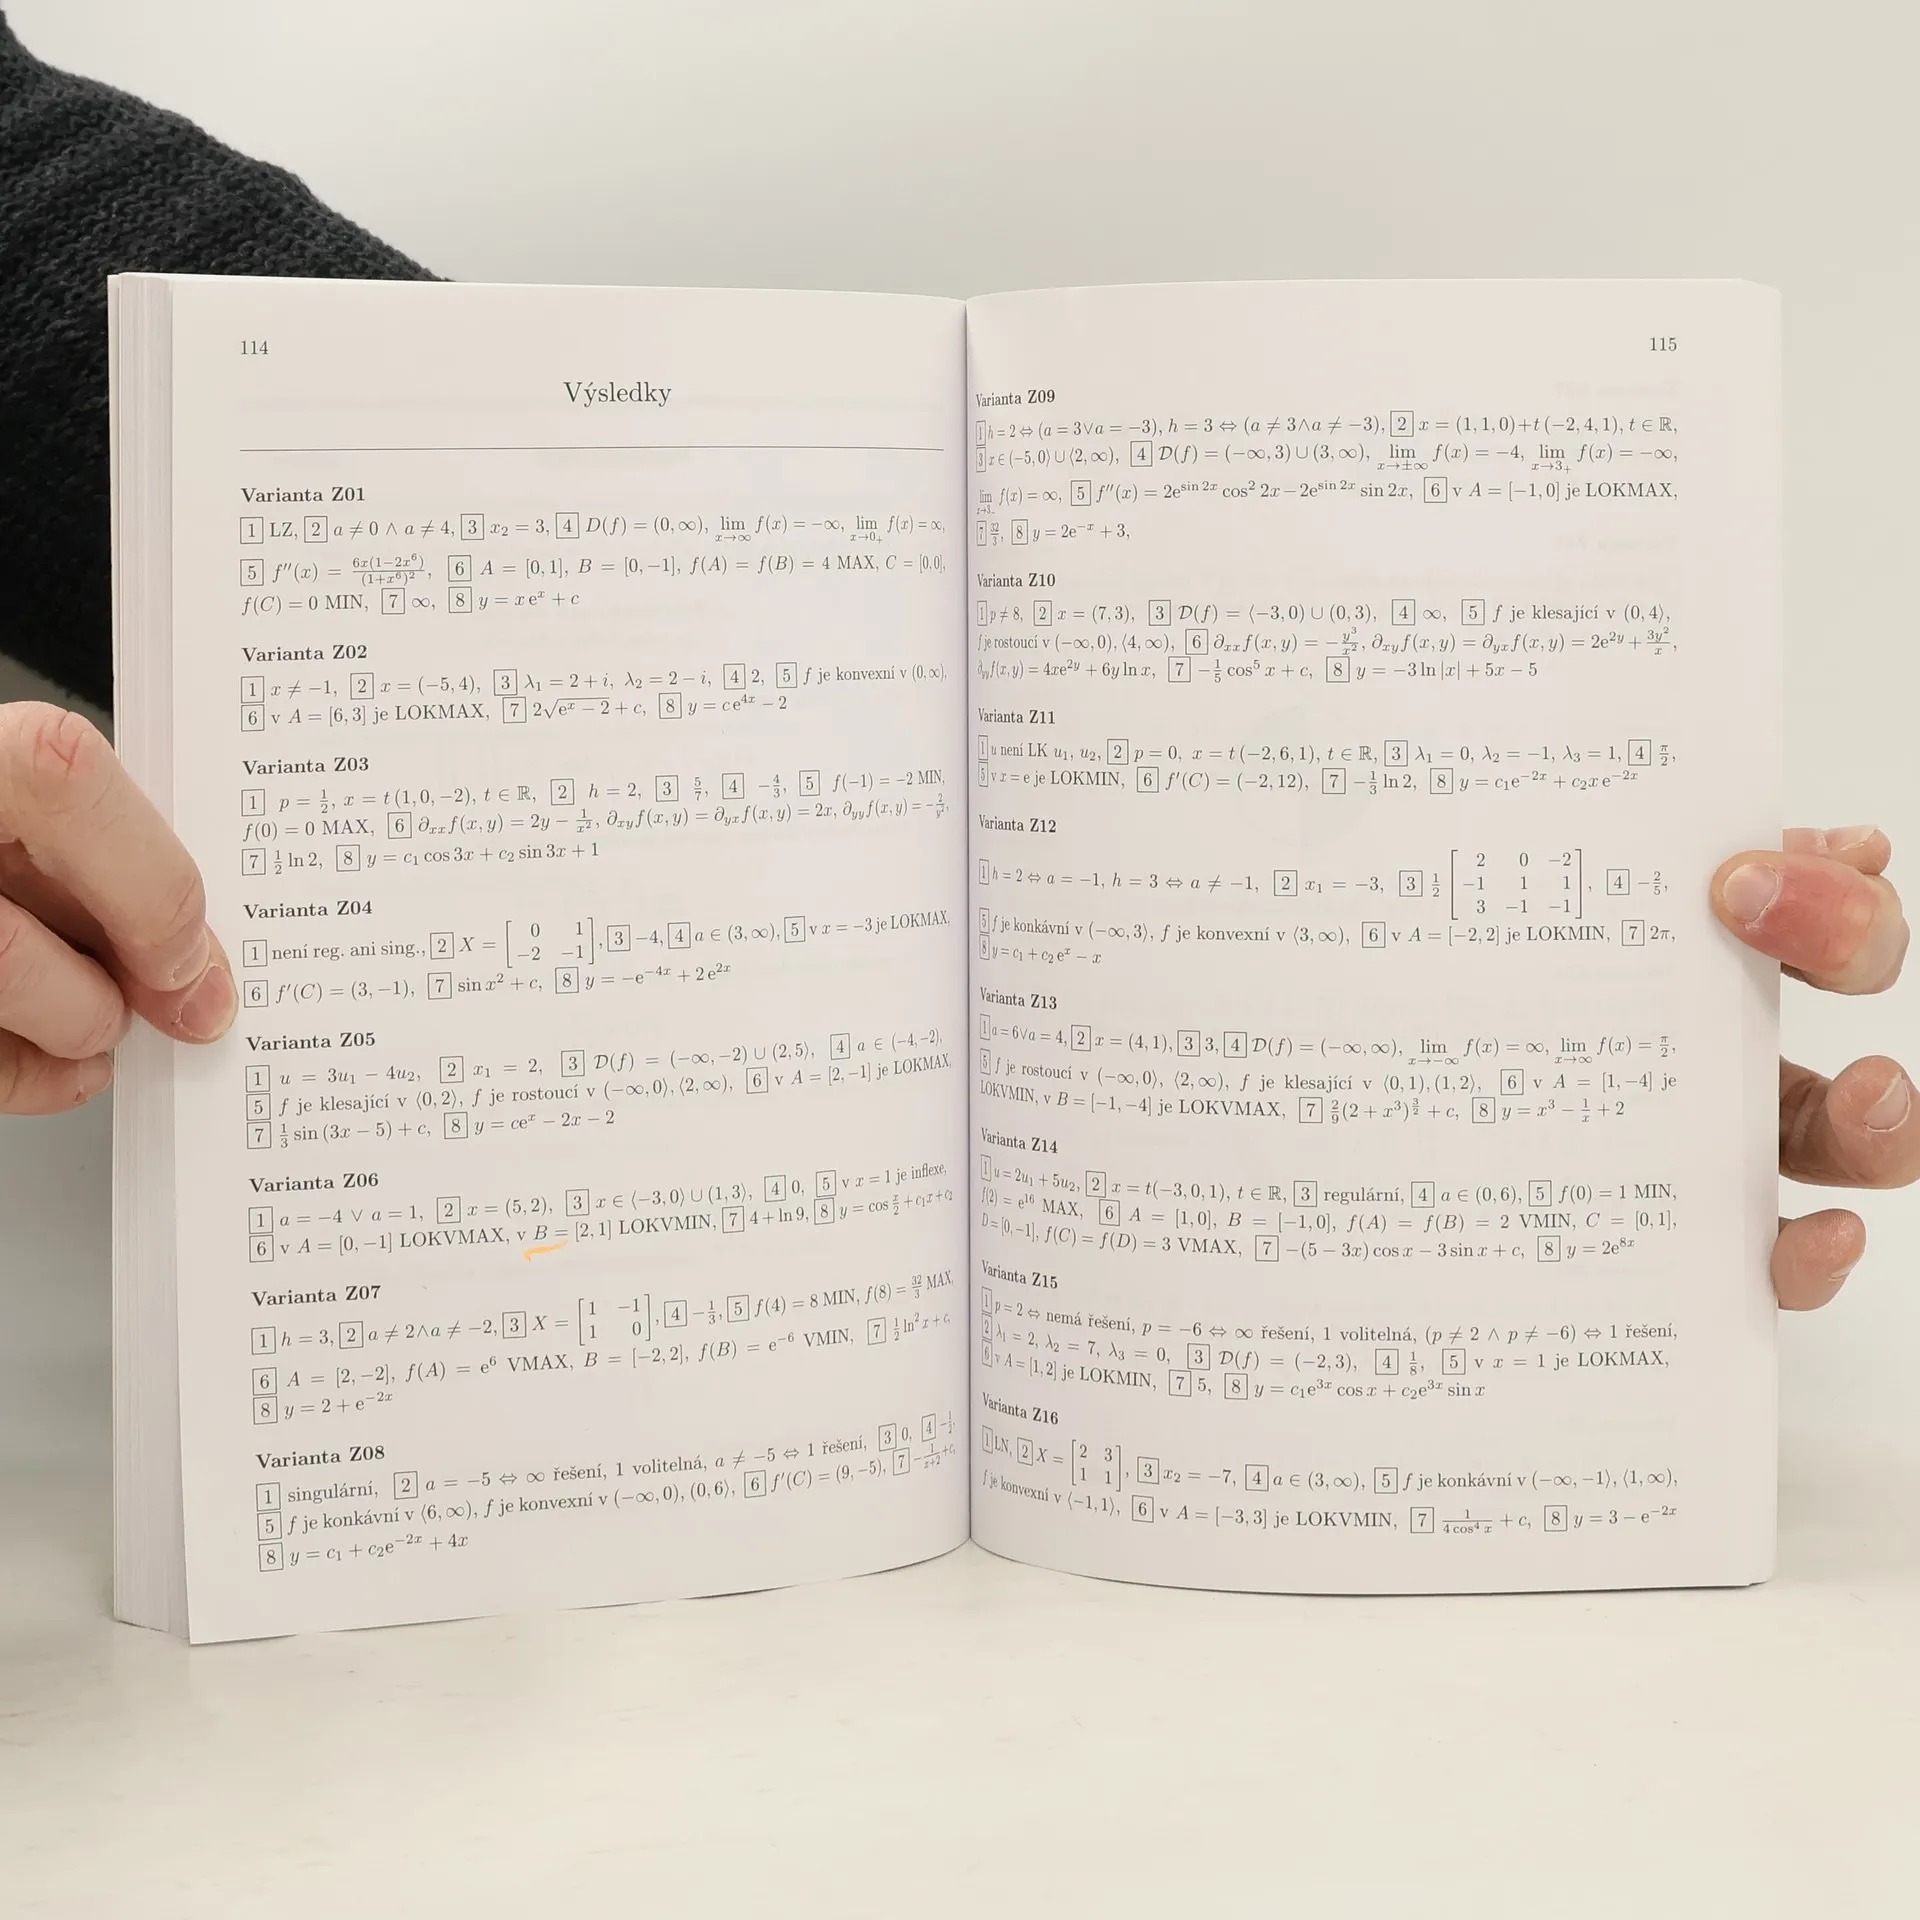 114
Výsledky
Varianta Z01
1 LZ, 2 a ≠ 0 ∧ a ≠ 4, 3 x₂ = 3, 4 D(f) = (0, ∞), lim_{x→∞} f(x) = −∞, lim_{x→0₊} f(x) = ∞,
5 f″(x) = 6x(1−2x⁶)/(1+x⁶)², 6 A = [0, 1], B = [0, −1], f(A) = f(B) = 4 MAX, C = [0,0],
f(C) = 0 MIN, 7 ∞, 8 y = x eˣ + c
Varianta Z02
1 x ≠ −1, 2 x = (−5, 4), 3 λ₁ = 2 + i, λ₂ = 2 − i, 4 2, 5 f je konvexní v (0, ∞),
6 v A = [6, 3] je LOKMAX, 7 2√(eˣ − 2) + c, 8 y = c e⁴ˣ − 2
Varianta Z03
1 p = 1/2, x = t (1, 0, −2), t ∈ ℝ, 2 h = 2, 3 5/7, 4 −4/3, 5 f(−1) = −2 MIN,
f(0) = 0 MAX, 6 ∂ₓₓf(x, y) = 2y − 1/x², ∂ₓᵧf(x, y) = ∂ᵧₓf(x, y) = 2x, ∂ᵧᵧf(x, y) = −2/y²,
7 1/2 ln 2, 8 y = c₁ cos 3x + c₂ sin 3x + 1
Varianta Z04
1 není reg. ani sing., 2 X = [0 1; −2 −1], 3 −4, 4 a ∈ (3, ∞), 5 v x = −3 je LOKMAX,
6 f′(C) = (3, −1), 7 sin x² + c, 8 y = −e⁻⁴ˣ + 2 e²ˣ
Varianta Z05
1 u = 3u₁ − 4u₂, 2 x₁ = 2, 3 𝒟(f) = (−∞, −2) ∪ (2, 5), 4 a ∈ (−4, −2),
5 f je klesající v ⟨0, 2⟩, f je rostoucí v (−∞, 0⟩, ⟨2, ∞), 6 v A = [2, −1] je LOKMAX,
7 1/3 sin (3x − 5) + c, 8 y = ceˣ − 2x − 2
Varianta Z06
1 a = −4 ∨ a = 1, 2 x = (5, 2), 3 x ∈ ⟨−3, 0) ∪ (1, 3⟩, 4 0, 5 v x = 1 je inflexe,
6 v A = [0, −1] LOKVMAX, v B = [2, 1] LOKVMIN, 7 4 + ln 9, 8 y = cos x/2 + c₁x + c₂
Varianta Z07
1 h = 3, 2 a ≠ 2∧a ≠ −2, 3 X = [1 −1; 1 0], 4 −1/3, 5 f(4) = 8 MIN, f(8) = 32/3 MAX,
6 A = [2, −2], f(A) = e⁶ VMAX, B = [−2, 2], f(B) = e⁻⁶ VMIN, 7 1/2 ln² x + c,
8 y = 2 + e⁻²ˣ
Varianta Z08
1 singulární, 2 a = −5 ⇔ ∞ řešení, 1 volitelná, a ≠ −5 ⇔ 1 řešení, 3 0, 4 −1/2,
5 f je konkávní v ⟨6, ∞), f je konvexní v (−∞, 0), (0, 6⟩, 6 f′(C) = (9, −5), 7 −1/(x+2) + c,
8 y = c₁ + c₂e⁻²ˣ + 4x
115
Varianta Z09
1 h = 2 ⇔ (a = 3∨a = −3), h = 3 ⇔ (a ≠ 3∧a ≠ −3), 2 x = (1, 1, 0)+t (−2, 4, 1), t ∈ ℝ,
3 x ∈ (−5, 0⟩ ∪ ⟨2, ∞), 4 𝒟(f) = (−∞, 3) ∪ (3, ∞), lim_{x→±∞} f(x) = −4, lim_{x→3₊} f(x) = −∞,
lim_{x→3₋} f(x) = ∞, 5 f″(x) = 2e^{sin 2x} cos² 2x − 2e^{sin 2x} sin 2x, 6 v A = [−1, 0] je LOKMAX,
7 32/3, 8 y = 2e⁻ˣ + 3,
Varianta Z10
1 p ≠ 8, 2 x = (7, 3), 3 𝒟(f) = ⟨−3, 0) ∪ (0, 3⟩, 4 ∞, 5 f je klesající v (0, 4⟩,
f je rostoucí v (−∞, 0), ⟨4, ∞), 6 ∂ₓₓf(x, y) = −y³/x², ∂ₓᵧf(x, y) = ∂ᵧₓf(x, y) = 2e²ʸ + 3y²/x,
∂ᵧᵧf(x, y) = 4xe²ʸ + 6y ln x, 7 −1/5 cos⁵ x + c, 8 y = −3 ln |x| + 5x − 5
Varianta Z11
1 u není LK u₁, u₂, 2 p = 0, x = t (−2, 6, 1), t ∈ ℝ, 3 λ₁ = 0, λ₂ = −1, λ₃ = 1, 4 π/2,
5 v x = e je LOKMIN, 6 f′(C) = (−2, 12), 7 −1/3 ln 2, 8 y = c₁e⁻²ˣ + c₂x e⁻²ˣ
Varianta Z12
1 h = 2 ⇔ a = −1, h = 3 ⇔ a ≠ −1, 2 x₁ = −3, 3 1/2 [2 0 −2; −1 1 1; 3 −1 −1], 4 −2/5,
5 f je konkávní v (−∞, 3⟩, f je konvexní v ⟨3, ∞), 6 v A = [−2, 2] je LOKMIN, 7 2π,
8 y = c₁ + c₂ eˣ − x
Varianta Z13
1 a = 6∨a = 4, 2 x = (4, 1), 3 3, 4 𝒟(f) = (−∞, ∞), lim_{x→−∞} f(x) = ∞, lim_{x→∞} f(x) = π/2,
5 f je rostoucí v (−∞, 0⟩, ⟨2, ∞), f je klesající v ⟨0, 1), (1, 2⟩, 6 v A = [1, −4] je
LOKVMIN, v B = [−1, −4] je LOKVMAX, 7 2/9(2 + x³)^{3/2} + c, 8 y = x³ − 1/x + 2
Varianta Z14
1 u = 2u₁ + 5u₂, 2 x = t(−3, 0, 1), t ∈ ℝ, 3 regulární, 4 a ∈ (0, 6), 5 f(0) = 1 MIN,
f(2) = e¹⁶ MAX, 6 A = [1, 0], B = [−1, 0], f(A) = f(B) = 2 VMIN, C = [0, 1],
D = [0, −1], f(C) = f(D) = 3 VMAX, 7 −(5 − 3x) cos x − 3 sin x + c, 8 y = 2e⁸ˣ
Varianta Z15
1 p = 2 ⇔ nemá řešení, p = −6 ⇔ ∞ řešení, 1 volitelná, (p ≠ 2 ∧ p ≠ −6) ⇔ 1 řešení,
2 λ₁ = 2, λ₂ = 7, λ₃ = 0, 3 𝒟(f) = (−2, 3), 4 1/8, 5 v x = 1 je LOKMAX,
6 v A = [1, 2] je LOKMIN, 7 5, 8 y = c₁e³ˣ cos x + c₂e³ˣ sin x
Varianta Z16
1 LN, 2 X = [2 3; 1 1], 3 x₂ = −7, 4 a ∈ (3, ∞), 5 f je konkávní v (−∞, −1⟩, ⟨1, ∞),
f je konvexní v ⟨−1, 1⟩, 6 v A = [−3, 3] je LOKVMIN, 7 1/(4 cos⁴ x) + c, 8 y = 3 − e⁻²ˣ